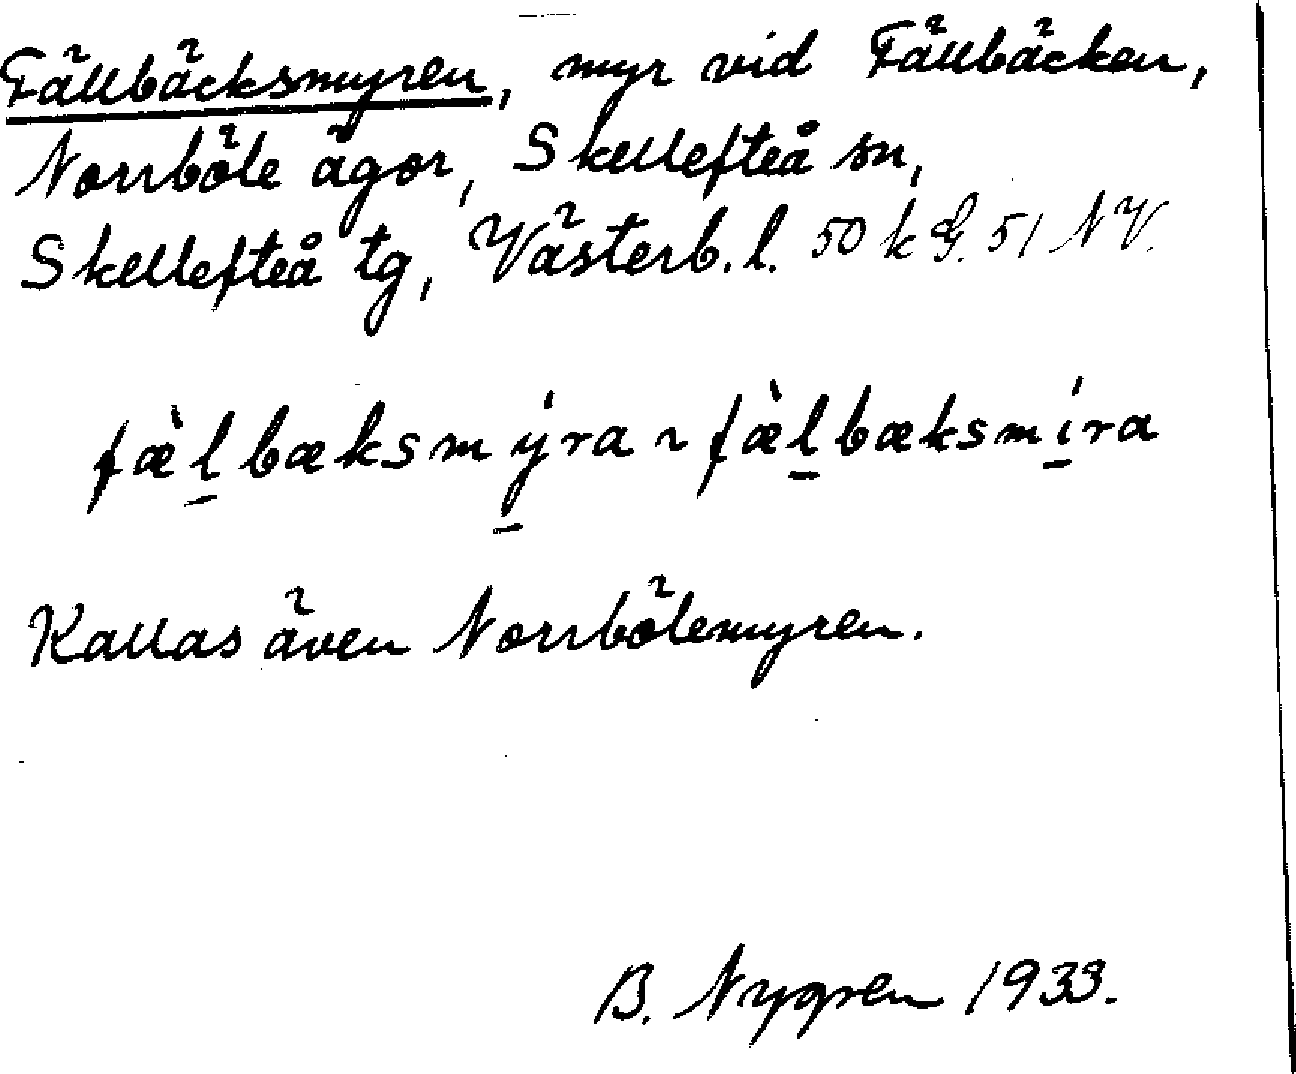 Fällbäcksmyren, myr vid Fällbäcken,
Norrböle ägor, Skellefteå sn,
Skellefteå tg, Västerb. l. 50 k G. 51 NV.
fæ̀l̲bæksmý̲ra ~ fæ̀l̲bæksmí̲ra
Kallas även Norrbölemyren.
B. Nygren 1933.